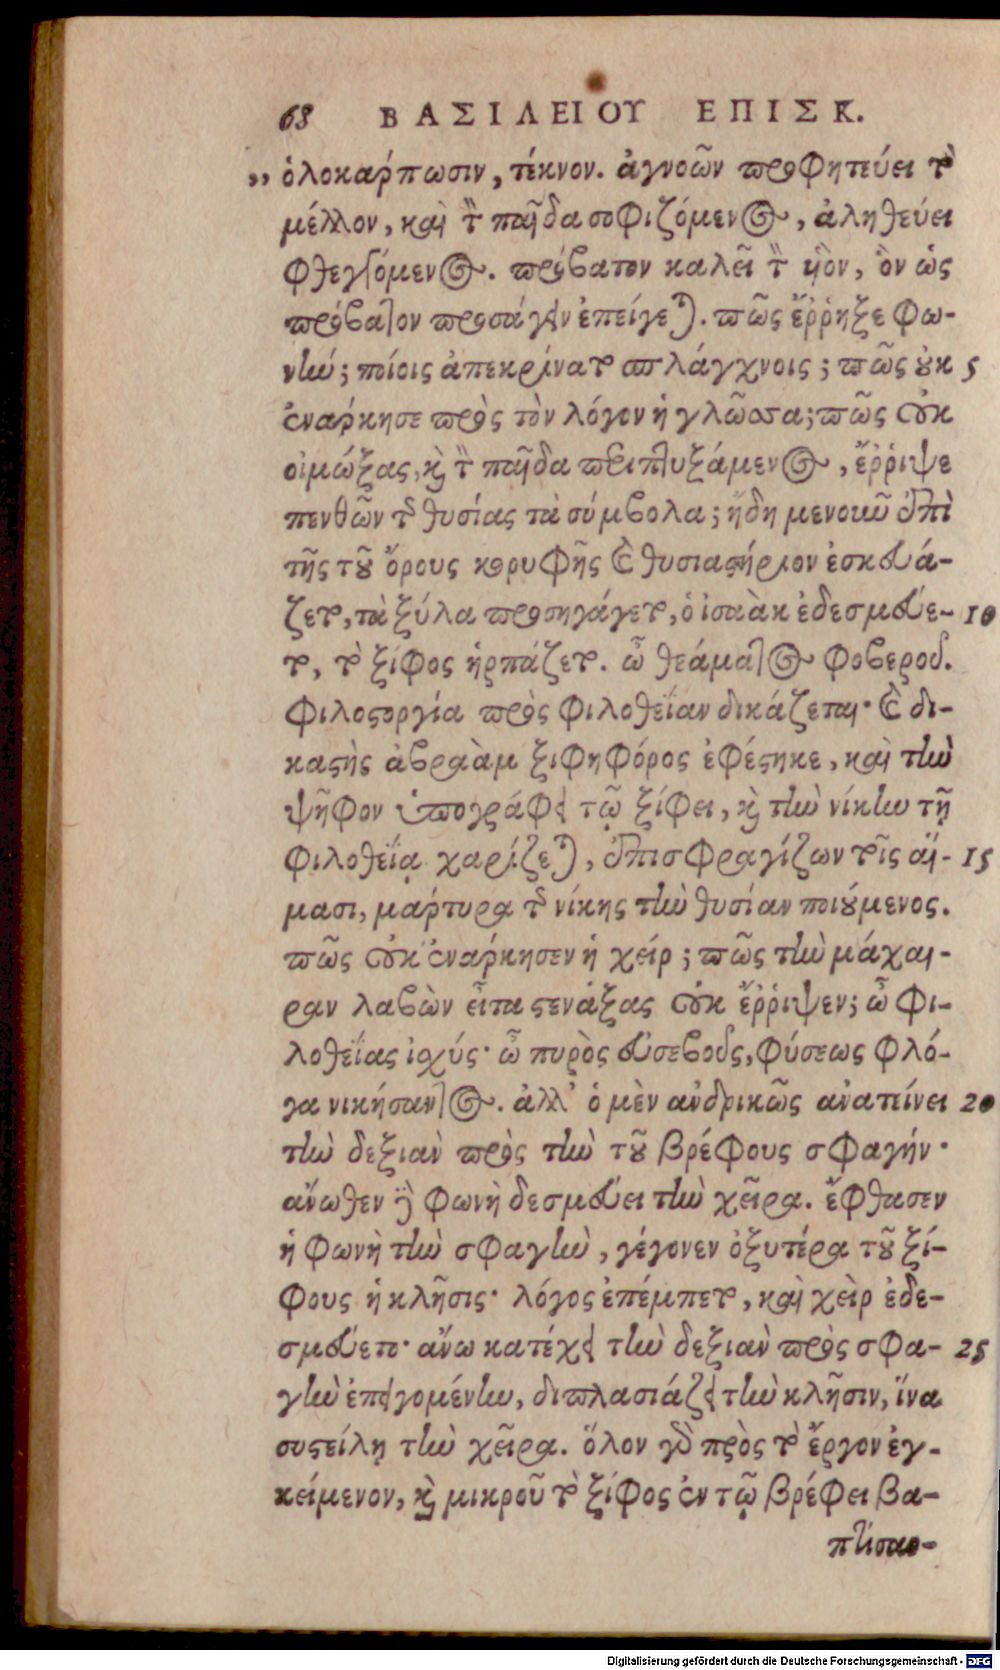 68 ΒΑΣΙΛΕΙΟΥ ΕΠΙΣΚ.
,, ὁλοκάρπωσιν, τέκνον. ἀγνοῶν προφητεύει τὸ
μέλλον, καὶ τὸν παῖδα σοφιζόμενος, ἀληθεύει
φθεγγόμενος. πρόβατον καλεῖ τὸν υἱὸν, ὃν ὡς
πρόβατον προσάγειν ἐπείγεται. πῶς ἔῤῥηξε φω-
νὴν; ποίοις ἀπεκρίνατο σπλάγχνοις; πῶς οὐκ 5
ἐνάρκησε πρὸς τὸν λόγον ἡ γλῶσσα; πῶς οὐκ
οἰμώξας, καὶ τὸν παῖδα περιπτυξάμενος, ἔῤῥιψε
πενθῶν τῆς θυσίας τὰ σύμβολα; ἤδη μενουῦ ἐπὶ
τῆς τοῦ ὄρους κορυφῆς τὸ θυσιαστήριον ἐσκευά-
ζετο, τὰ ξύλα προσηγάγετο, ὁ ἰσαὰκ ἐδεσμεύε- 10
το, τὸ ξίφος ἡρπάζετο. ὦ θεάματος φοβεροῦ.
φιλοστοργία πρὸς φιλοθεΐαν δικάζεται· καὶ δι-
καστὴς ἀβραὰμ ξιφηφόρος ἐφέστηκε, καὶ τὴν
ψῆφον ὑπογράφει τῷ ξίφει, καὶ τὴν νίκην τῇ
φιλοθεΐᾳ χαρίζεται, ἐπισφραγίζων τοῖς αἵ- 15
μασι, μάρτυρα τῆς νίκης τὴν θυσίαν ποιούμενος.
πῶς οὐκ ἐνάρκησεν ἡ χείρ; πῶς τὴν μάχαι-
ραν λαβὼν εἶτα στενάξας οὐκ ἔῤῥιψεν; ὦ φι-
λοθεΐας ἰσχύς· ὦ πυρὸς εὐσεβοῦς, φύσεως φλό-
γα νικήσαντος. ἀλλ' ὁ μὲν ἀνδρικῶς ἀνατείνει 20
τὴν δεξιὰν πρὸς τὴν τοῦ βρέφους σφαγήν·
ἄνωθεν δὲ φωνὴ δεσμεύει τὴν χεῖρα. ἔφθασεν
ἡ φωνὴ τὴν σφαγὴν, γέγονεν ὀξυτέρα τοῦ ξί-
φους ἡ κλῆσις· λόγος ἐπέμπετο, καὶ χεὶρ ἐδε-
σμεύετο· ἄνω κατέχει τὴν δεξιὰν πρὸς σφα- 25
γὴν ἐπειγομένην, διπλασιάζει τὴν κλῆσιν, ἵνα
συστείλῃ τὴν χεῖρα. ὅλον γὰρ πρὸς τὸ ἔργον ἐγ-
κείμενον, καὶ μικροῦ τὸ ξίφος ἐν τῷ βρέφει βα-
πτίσαν-
Digitalisierung gefördert durch die Deutsche Forschungsgemeinschaft - DFG